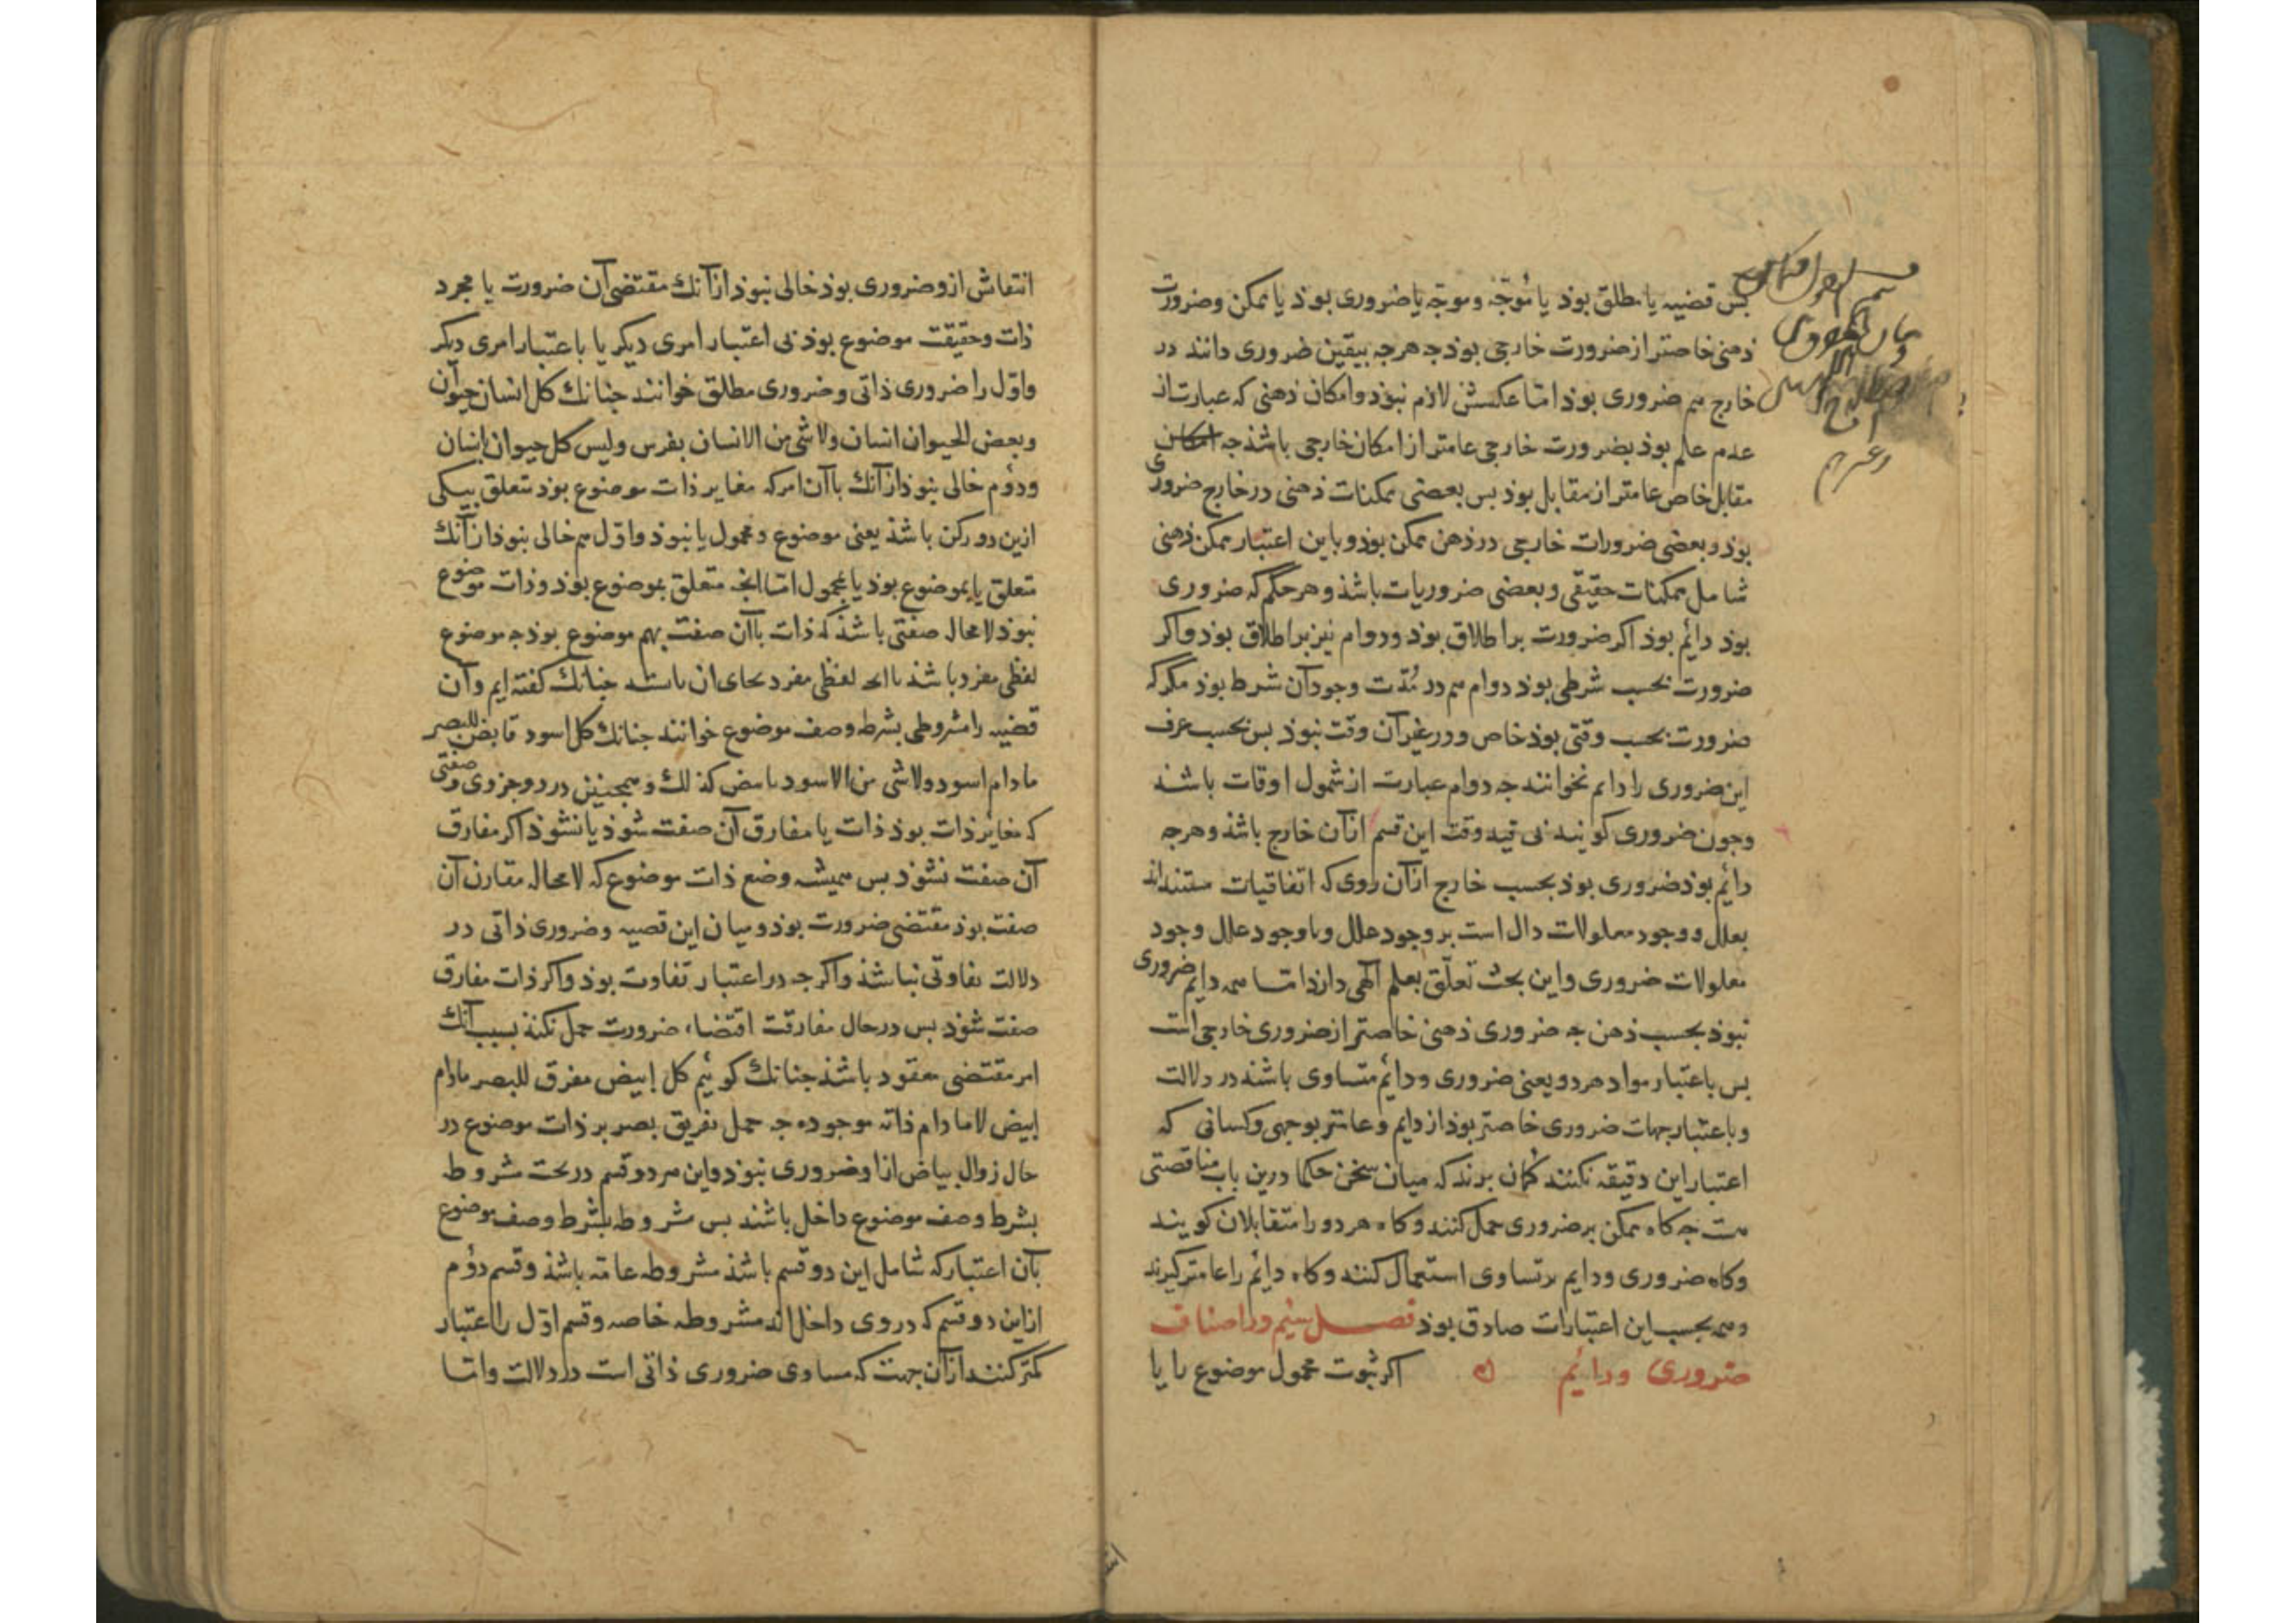 بس قضیه یا مطلق بوذ یا مُوجّه وموجّه یا ضروری بوذ یا ممکن وضرورت
ذهنی خاصتر از ضرورت خارجی بوذ جه هرجه بیقین ضروری دانند در
خارج هم ضروری بوذ امّا عکسش لازم نبوذ وامکان ذهنی که عبارتست از
عدم علم بوذ بضرورت خارجی عامتر از امکان خارجی باشذ جه
مقابل خاص عامتر از مقابل بوذ بس بعضی ممکنات ذهنی در خارج ضروری
بوذ وبعضی ضرورات خارجی در ذهن ممکن بوذ وباین اعتبار ممکن ذهنی
شامل ممکنات حقیقی وبعضی ضروریات باشذ وهر حکم که ضروری
بوذ دائم بوذ اکر ضرورت بر اطلاق بوذ ودوام نیز بر اطلاق بوذ واکر
ضرورت بحسب شرطی بوذ دوام هم در مُدّت وجود آن شرط بوذ مکر که
ضرورت بحسب وقتی بوذ خاص ودر غیر آن وقت نبوذ بس بحسب عرف
این ضروری را دایم نخوانند جه دوام عبارت از شمول اوقات باشد
وجون ضروری کویند بی قید وقت این قسم از آن خارج باشذ وهرجه
دائم بوذ ضروری بوذ بحسب خارج از آن روی که اتفاقیات مستنداند
بعلل ووجود معلولات دال است بر وجود علل وباوجود علل وجود
معلولات ضروری واین بحث تعلّق بعلم الٓهی دارد امّا همه دایم ضروری
نبوذ بحسب ذهن جه ضروری ذهنی خاصتر از ضروری خارجی است
بس باعتبار مواد هر دو یعنی ضروری ودائم متساوی باشند در دلالت
وباعتبار جهات ضروری خاصتر بوذ از دایم وعامتر بوجهی وکسانی که
اعتبار این دقیقه نکنند کمان برند که میان سخن حکما درین باب مناقضتی
هست جه کاه ممکن بر ضروری حمل کنند وکاه هر دو را متقابلان کویند
وکاه ضروری ودایم بر تساوی استعمال کنند وکاه دائم را عامتر کیرند
وهمه بحسب این اعتبارات صادق بوذ فصل سیم در اصناف
ضروری ودائم اکر ثبوت محمول موضوع را یا
انتفاش ازو ضروری بوذ خالی نبوذ از آنك مقتضی آن ضرورت یا مجرد
ذات وحقیقت موضوع بوذ بی اعتبار امری دیکر یا باعتبار امری دیکر
واوّل را ضروری ذاتی وضروری مطلق خوانند جنانك کل انسان حیوان
وبعض الحیوان انسان ولا شی من الانسان بفرس ولیس کل حیوان بانسان
ودوُم خالی نبوذ از آنك با آن امر که مغایر ذات موضوع بوذ متعلق بیکی
ازین دو رکن باشذ یعنی موضوع ومحمول یا نبوذ واوّل هم خالی نبوذ از آنك
متعلق یا بموضوع بوذ یا بمحمول امّا انجه متعلق بموضوع بوذ وذات موضوع
نبوذ لا محاله صفتی باشذ که ذات با آن صفت بهم موضوع بوذ جه موضوع
لفظی مفرد باشذ یا انجه لفظی مفرد بجای ان باشد جنانك کفته ایم وآن
قضیه را مشروطی بشرط وصف موضوع خوانند جنانك کل اسود قابض للبصر
مادام اسود ولا شی من الاسود بابیض کذلك وهمجنین در دو جزوی وصفتی
که مغایر ذات بوذ ذات یا مفارق آن صفت شوذ یا نشوذ اکر مفارق
آن صفت نشوذ بس همیشه وضع ذات موضوع که لا محاله مقارن آن
صفت بوذ مقتضی ضرورت بوذ ومیان این قضیه وضروری ذاتی در
دلالت تفاوتی نباشذ واکرجه در اعتبار تفاوت بوذ واکر ذات مفارق
صفت شوذ بس در حال مفارقت اقتضاء ضرورت حمل نکند بسبب آنك
امر مقتضی مفقود باشذ جنانك کوئیم کل ابیض مفرق للبصر مادام
ابیض لا مادام ذاته موجوده جه حمل تفریق بصر بر ذات موضوع در
حال زوال بیاض ازا وضروری نبوذ واین هر دو قسم در تحت مشروط
بشرط وصف موضوع داخل باشند بس مشروطه بشرط وصف موضوع
بآن اعتبار که شامل این دو قسم باشذ مشروطه عامّه باشذ وقسم دوُم
از این دو قسم که در وی داخل اند مشروطه خاصه وقسم اوّل را اعتبار
کمتر کنند از آن جهت که مساوی ضروری ذاتی است در دلالت وامّا